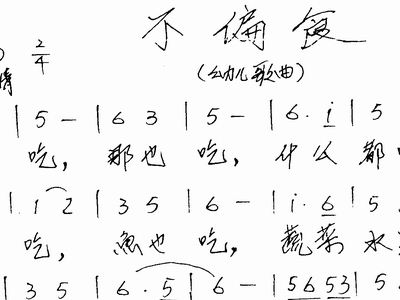 不偏食
2/4
(幼儿歌曲)
情
| 5 – | 6 3 | 5 – | 6 · i | 5
吃, 那也 吃, 什么 都
| . 1 2 | 3 5 | 6 – | i · 6 | 5
吃, 鱼也 吃, 蔬菜 水
| 3 5 | 6 · 5 | 6 – | 5 6 5 3 | 5